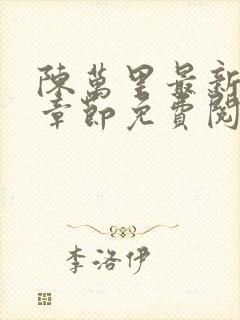 陳萬里最新
章節免費閱
李洛伊